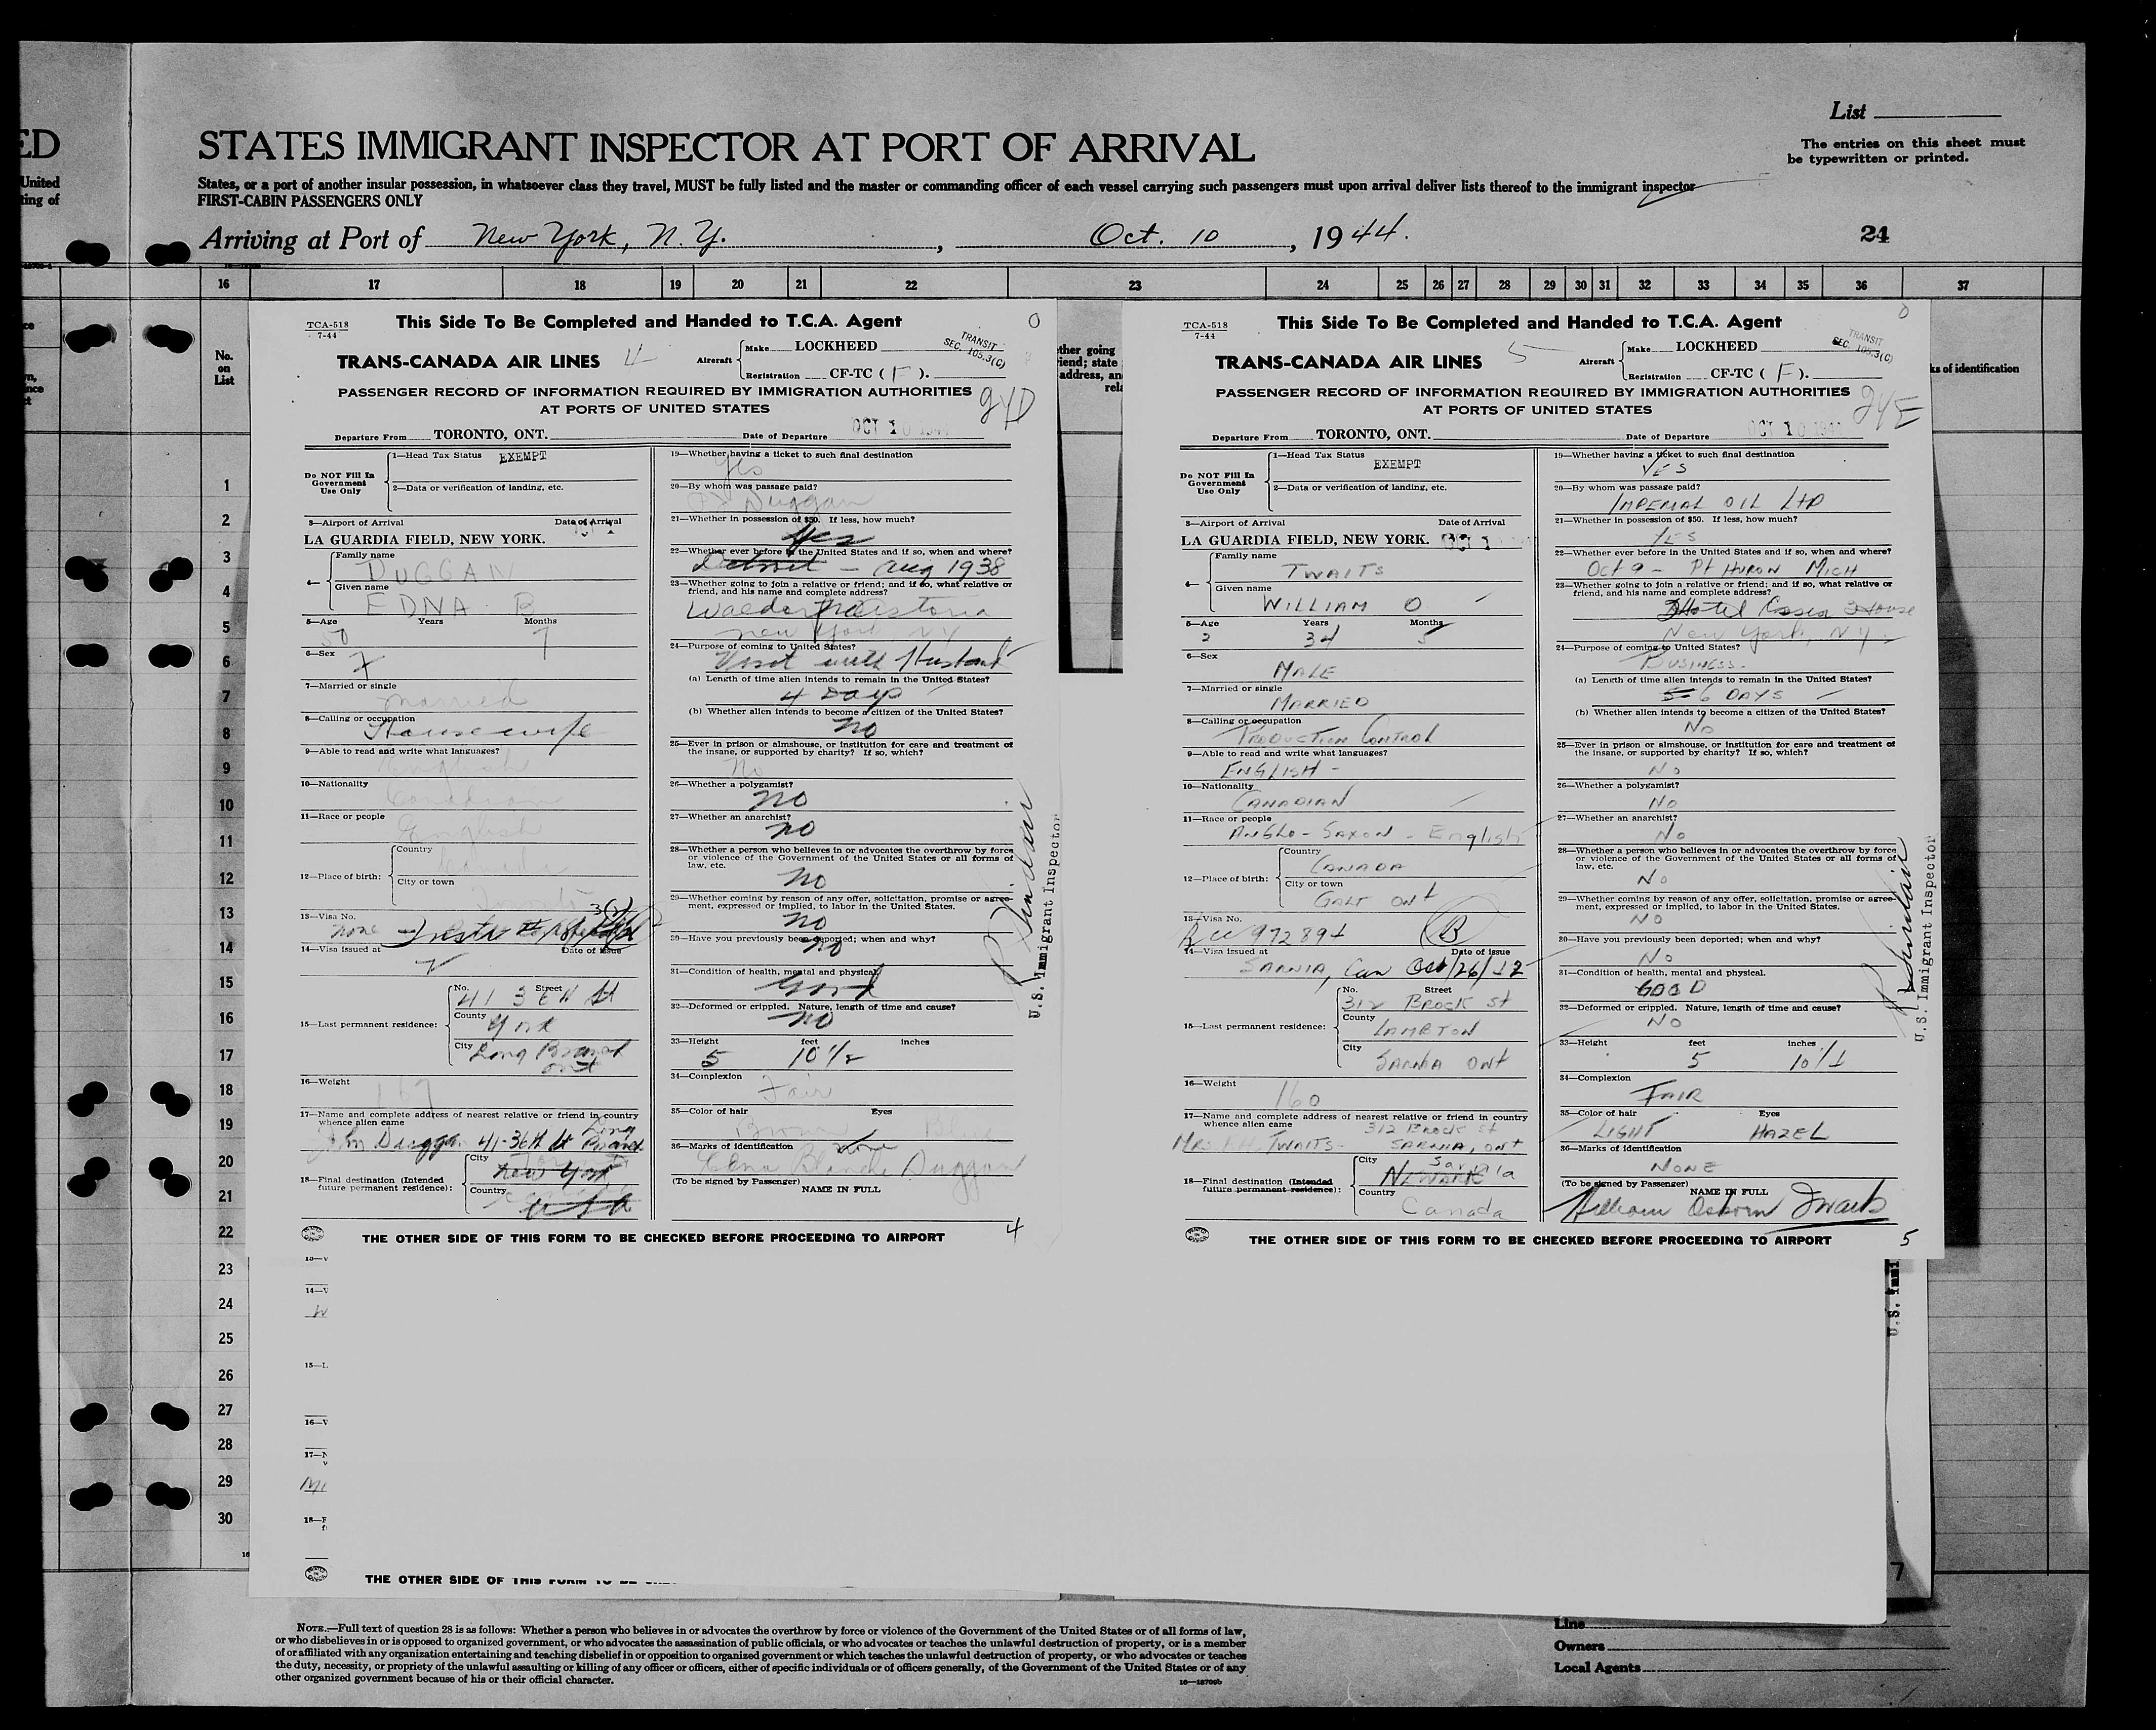 List
STATES IMMIGRANT INSPECTOR AT PORT OF ARRIVAL
The entries on this sheet must
be typewritten or printed.
States, or a port of another insular possession, in whatsoever class they travel, MUST be fully listed and the master or commanding officer of each vessel carrying such passengers must upon arrival deliver lists thereof to the immigrant inspector
FIRST-CABIN PASSENGERS ONLY
Arriving at Port of New York, N.Y., Oct. 10, 1944.
24
16 17 18 19 20 21 22 23 24 25 26 27 28 29 30 31 32 33 34 35 36 37
No.
on
List
1
2
3
4
5
6
7
8
9
10
11
12
13
14
15
16
17
18
19
20
21
22
23
24
25
26
27
28
29
30
TCA-518
7-44
This Side To Be Completed and Handed to T.C.A. Agent
TRANS-CANADA AIR LINES 4
Aircraft Make LOCKHEED
Registration CF-TC ( F ).
TRANSIT
SEC. 105.3(C)
PASSENGER RECORD OF INFORMATION REQUIRED BY IMMIGRATION AUTHORITIES
AT PORTS OF UNITED STATES
24D
Departure From TORONTO, ONT. Date of Departure OCT 10 1944
Do NOT Fill In
Government
Use Only
1—Head Tax Status EXEMPT
2—Data or verification of landing, etc.
3—Airport of Arrival Date of Arrival
LA GUARDIA FIELD, NEW YORK.
4— Family name
DUGGAN
Given name
EDNA B
5—Age Years Months
50 7
6—Sex
7—Married or single
Married
8—Calling or occupation
Housewife
9—Able to read and write what languages?
English
10—Nationality
Canadian
11—Race or people
English
12—Place of birth: Country
Canada
City or town
Toronto
13—Visa No.
None
14—Visa issued at Date of issue
15—Last permanent residence: No. Street
41 36th St
County
York
City
Long Branch
Ont
16—Weight
167
17—Name and complete address of nearest relative or friend in country
whence alien came
John Duggan 41-36th St Long Branch
18—Final destination (Intended
future permanent residence): City
New York
Country
USA
19—Whether having a ticket to such final destination
Yes
20—By whom was passage paid?
Duggan
21—Whether in possession of $50. If less, how much?
Yes
22—Whether ever before in the United States and if so, when and where?
Detroit - Aug 1938
23—Whether going to join a relative or friend; and if so, what relative or
friend, and his name and complete address?
Waldorf Astoria
New York NY
24—Purpose of coming to United States?
Visit with Husband
(a) Length of time alien intends to remain in the United States?
4 Days
(b) Whether alien intends to become a citizen of the United States?
No
25—Ever in prison or almshouse, or institution for care and treatment of
the insane, or supported by charity? If so, which?
No
26—Whether a polygamist?
No
27—Whether an anarchist?
No
28—Whether a person who believes in or advocates the overthrow by force
or violence of the Government of the United States or all forms of
law, etc.
No
29—Whether coming by reason of any offer, solicitation, promise or agree-
ment, expressed or implied, to labor in the United States.
No
30—Have you previously been deported; when and why?
No
31—Condition of health, mental and physical.
Good
32—Deformed or crippled. Nature, length of time and cause?
No
33—Height feet inches
5 10 1/2
34—Complexion
Fair
35—Color of hair Eyes
Brown Blue
36—Marks of identification
None
Edna Blanche Duggan
(To be signed by Passenger)
NAME IN FULL
U.S. Immigrant Inspector
THE OTHER SIDE OF THIS FORM TO BE CHECKED BEFORE PROCEEDING TO AIRPORT
4
TCA-518
7-44
This Side To Be Completed and Handed to T.C.A. Agent
TRANS-CANADA AIR LINES 5
Aircraft Make LOCKHEED
Registration CF-TC ( F ).
TRANSIT
SEC. 105.3(C)
PASSENGER RECORD OF INFORMATION REQUIRED BY IMMIGRATION AUTHORITIES
AT PORTS OF UNITED STATES
24E
Departure From TORONTO, ONT. Date of Departure OCT 10 1944
Do NOT Fill In
Government
Use Only
1—Head Tax Status
EXEMPT
2—Data or verification of landing, etc.
3—Airport of Arrival Date of Arrival
LA GUARDIA FIELD, NEW YORK. OCT 1
4— Family name
TWAITS
Given name
WILLIAM O
5—Age Years Months
34 5
6—Sex
MALE
7—Married or single
MARRIED
8—Calling or occupation
PRODUCTION CONTROL
9—Able to read and write what languages?
ENGLISH -
10—Nationality
CANADIAN
11—Race or people
ANGLO-SAXON - English
12—Place of birth: Country
CANADA
City or town
GALT ONT
13—Visa No.
(B)
14—Visa issued at Date of issue
SARNIA, Can Oct/26/42
15—Last permanent residence: No. Street
312 BROCK ST
County
LAMBTON
City
SARNIA ONT
16—Weight
160
17—Name and complete address of nearest relative or friend in country
whence alien came 312 BROCK ST
MRS TWAITS - SARNIA, ONT
18—Final destination (Intended
future permanent residence): City
Sarnia
NEWARK
Country
Canada
19—Whether having a ticket to such final destination
YES
20—By whom was passage paid?
IMPERIAL OIL LTD
21—Whether in possession of $50. If less, how much?
YES
22—Whether ever before in the United States and if so, when and where?
Oct 9 - Pt HURON MICH
23—Whether going to join a relative or friend; and if so, what relative or
friend, and his name and complete address?
Hotel Essex House
New York, NY.
24—Purpose of coming to United States?
BUSINESS.
(a) Length of time alien intends to remain in the United States?
6 DAYS
(b) Whether alien intends to become a citizen of the United States?
No
25—Ever in prison or almshouse, or institution for care and treatment of
the insane, or supported by charity? If so, which?
No
26—Whether a polygamist?
No
27—Whether an anarchist?
No
28—Whether a person who believes in or advocates the overthrow by force
or violence of the Government of the United States or all forms of
law, etc.
No
29—Whether coming by reason of any offer, solicitation, promise or agree-
ment, expressed or implied, to labor in the United States.
NO
30—Have you previously been deported; when and why?
No
31—Condition of health, mental and physical.
GOOD
32—Deformed or crippled. Nature, length of time and cause?
No
33—Height feet inches
5
34—Complexion
FAIR
35—Color of hair Eyes
LIGHT HAZEL
36—Marks of identification
NONE
(To be signed by Passenger)
NAME IN FULL
William Osborn Twaits
U.S. Immigrant Inspector
THE OTHER SIDE OF THIS FORM TO BE CHECKED BEFORE PROCEEDING TO AIRPORT
5
THE OTHER SIDE OF THIS FORM
7
NOTE.—Full text of question 28 is as follows: Whether a person who believes in or advocates the overthrow by force or violence of the Government of the United States or of all forms of law,
or who disbelieves in or is opposed to organized government, or who advocates the assassination of public officials, or who advocates or teaches the unlawful destruction of property, or is a member
of or affiliated with any organization entertaining and teaching disbelief in or opposition to organized government or which teaches the unlawful destruction of property, or who advocates or teaches
the duty, necessity, or propriety of the unlawful assaulting or killing of any officer or officers, either of specific individuals or of officers generally, of the Government of the United States or of any
other organized government because of his or their official character.
Line
Owners
Local Agents